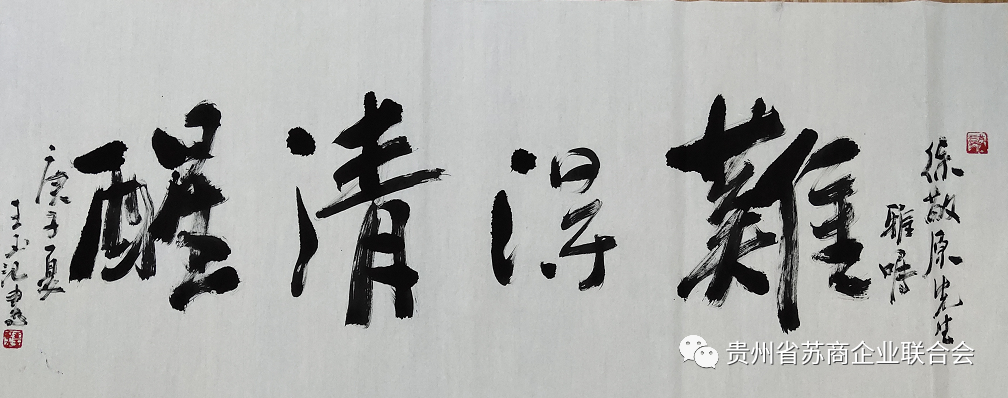 徐敬原先生
雅嘱
難得清醒
庚子夏
王玉
贵州省苏商企业联合会